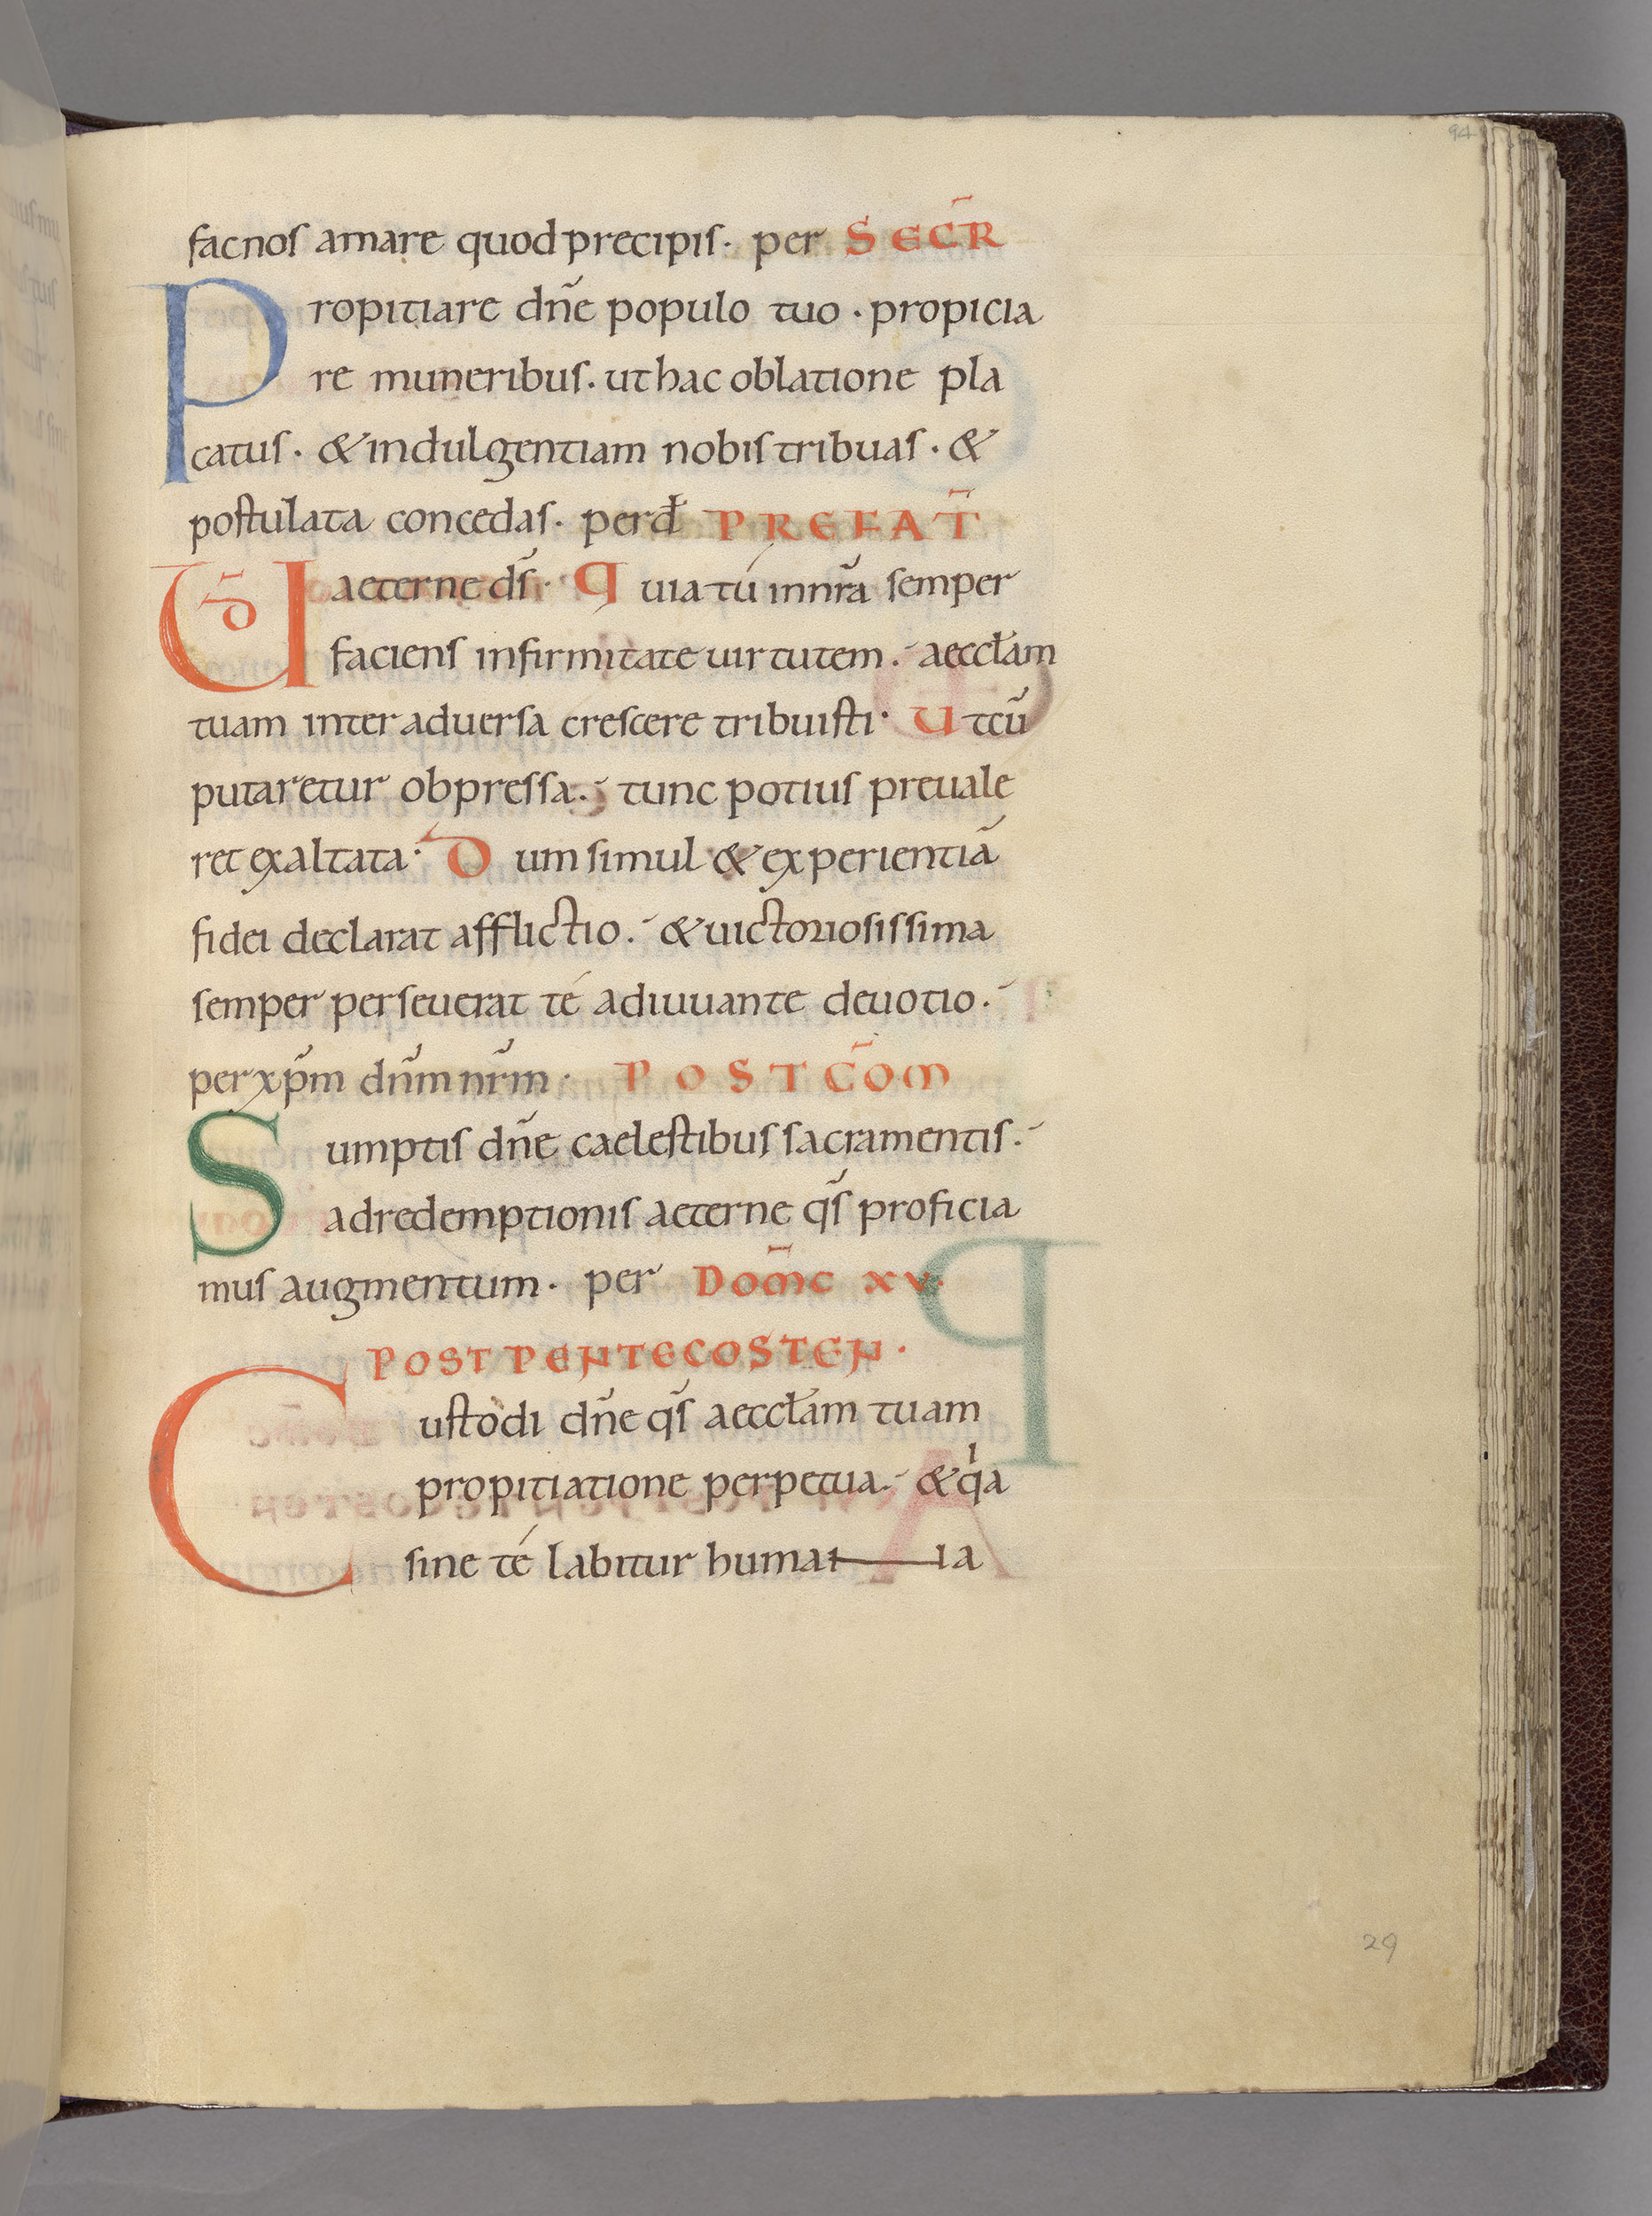 94
facnos amare quod precipis · per SECR̄
Propitiare dn̄e populo tuo · propicia
re muneribus · ut hac oblatione pla
catus · & indulgentiam nobis tribuas · &
postulata concedas · perd̄ PREFAT̄
UD̄ aeterne ds̄ · Quia tú in nr̄a semper
faciens infirmitate uirtutem · aeccl̄am
tuam inter aduersa crescere tribuisti · Ut cū
putaretur obpressa · tunc potius preuale
ret exaltata · Dum simul & experientiā
fidei declarat afflictio · & uictoriosissima
semper perseuerat té adiuuante deuotio ·
per xp̄m dn̄m nr̄m · POST C̄OM
Sumptis dn̄e caelestibus sacramentis ·
ad redemptionis aeterne qs̄ proficia
mus augmentum · per DOM̄C XV ·
POST PENTECOSTEN ·
Custodi dn̄e qs̄ aeccl̄am tuam
propitiatione perpetua · & qͥa
sine té labitur huma ia
29